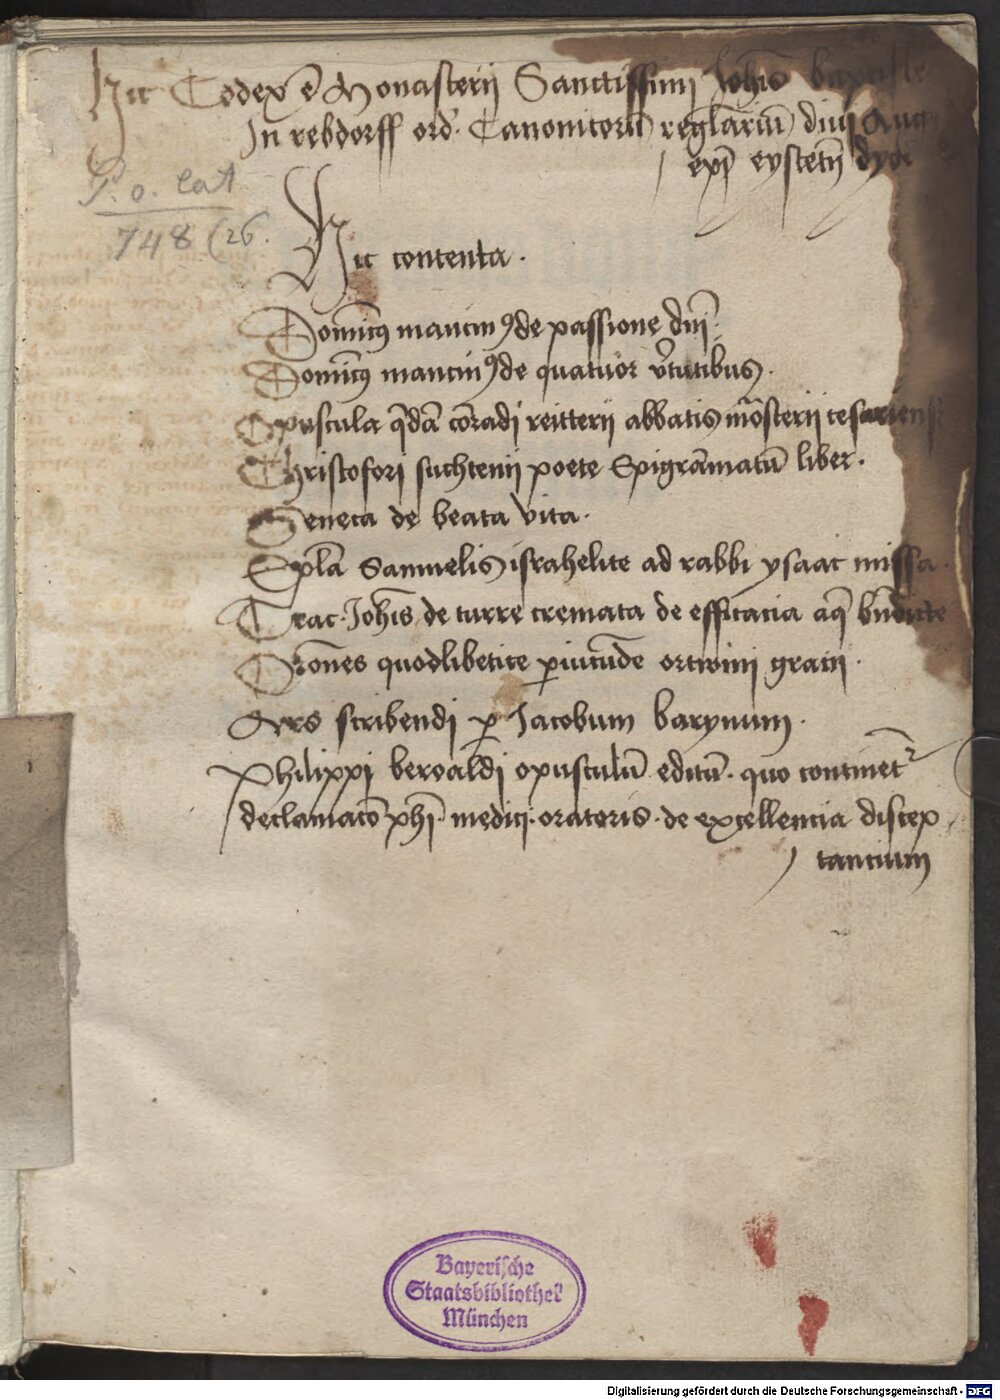 Hic Codex ē Monasterij Sanctissimi Johīs baptiste
In rebdorff ord. Canonicorū reglariū diui Aug
ex̄p eystetn̄ dyoc
P. o. lat
748 (26.
Hic contenta.
Dominicꝰ mancinꝰ de passione dn̄i.
Dominicꝰ mancinꝰ de quatuor v̄tutibus.
Opuscula q̄dā cōradj reitterij abbatis mōsterij cesariens
Christofori suchtenij poete Epigrāmatū liber.
Seneca de beata vita.
Ep̄la Samuelis israhelite ad rabbi ysaac missa.
Trac. Joh̄is de turre cremata de efficacia aq̄ bn̄dicte
Orōnes quodlibetice ꝑiucūde ortwini gratij.
Ars scribendj ꝑ Jacobum barynum.
Philippj beroaldj opusculū editū. quo continet
declamacō ph̄i. medicj. oratoris. de excellencia discep
tancium
Bayerische
Staatsbibliothek
München
Digitalisierung gefördert durch die Deutsche Forschungsgemeinschaft - DFG